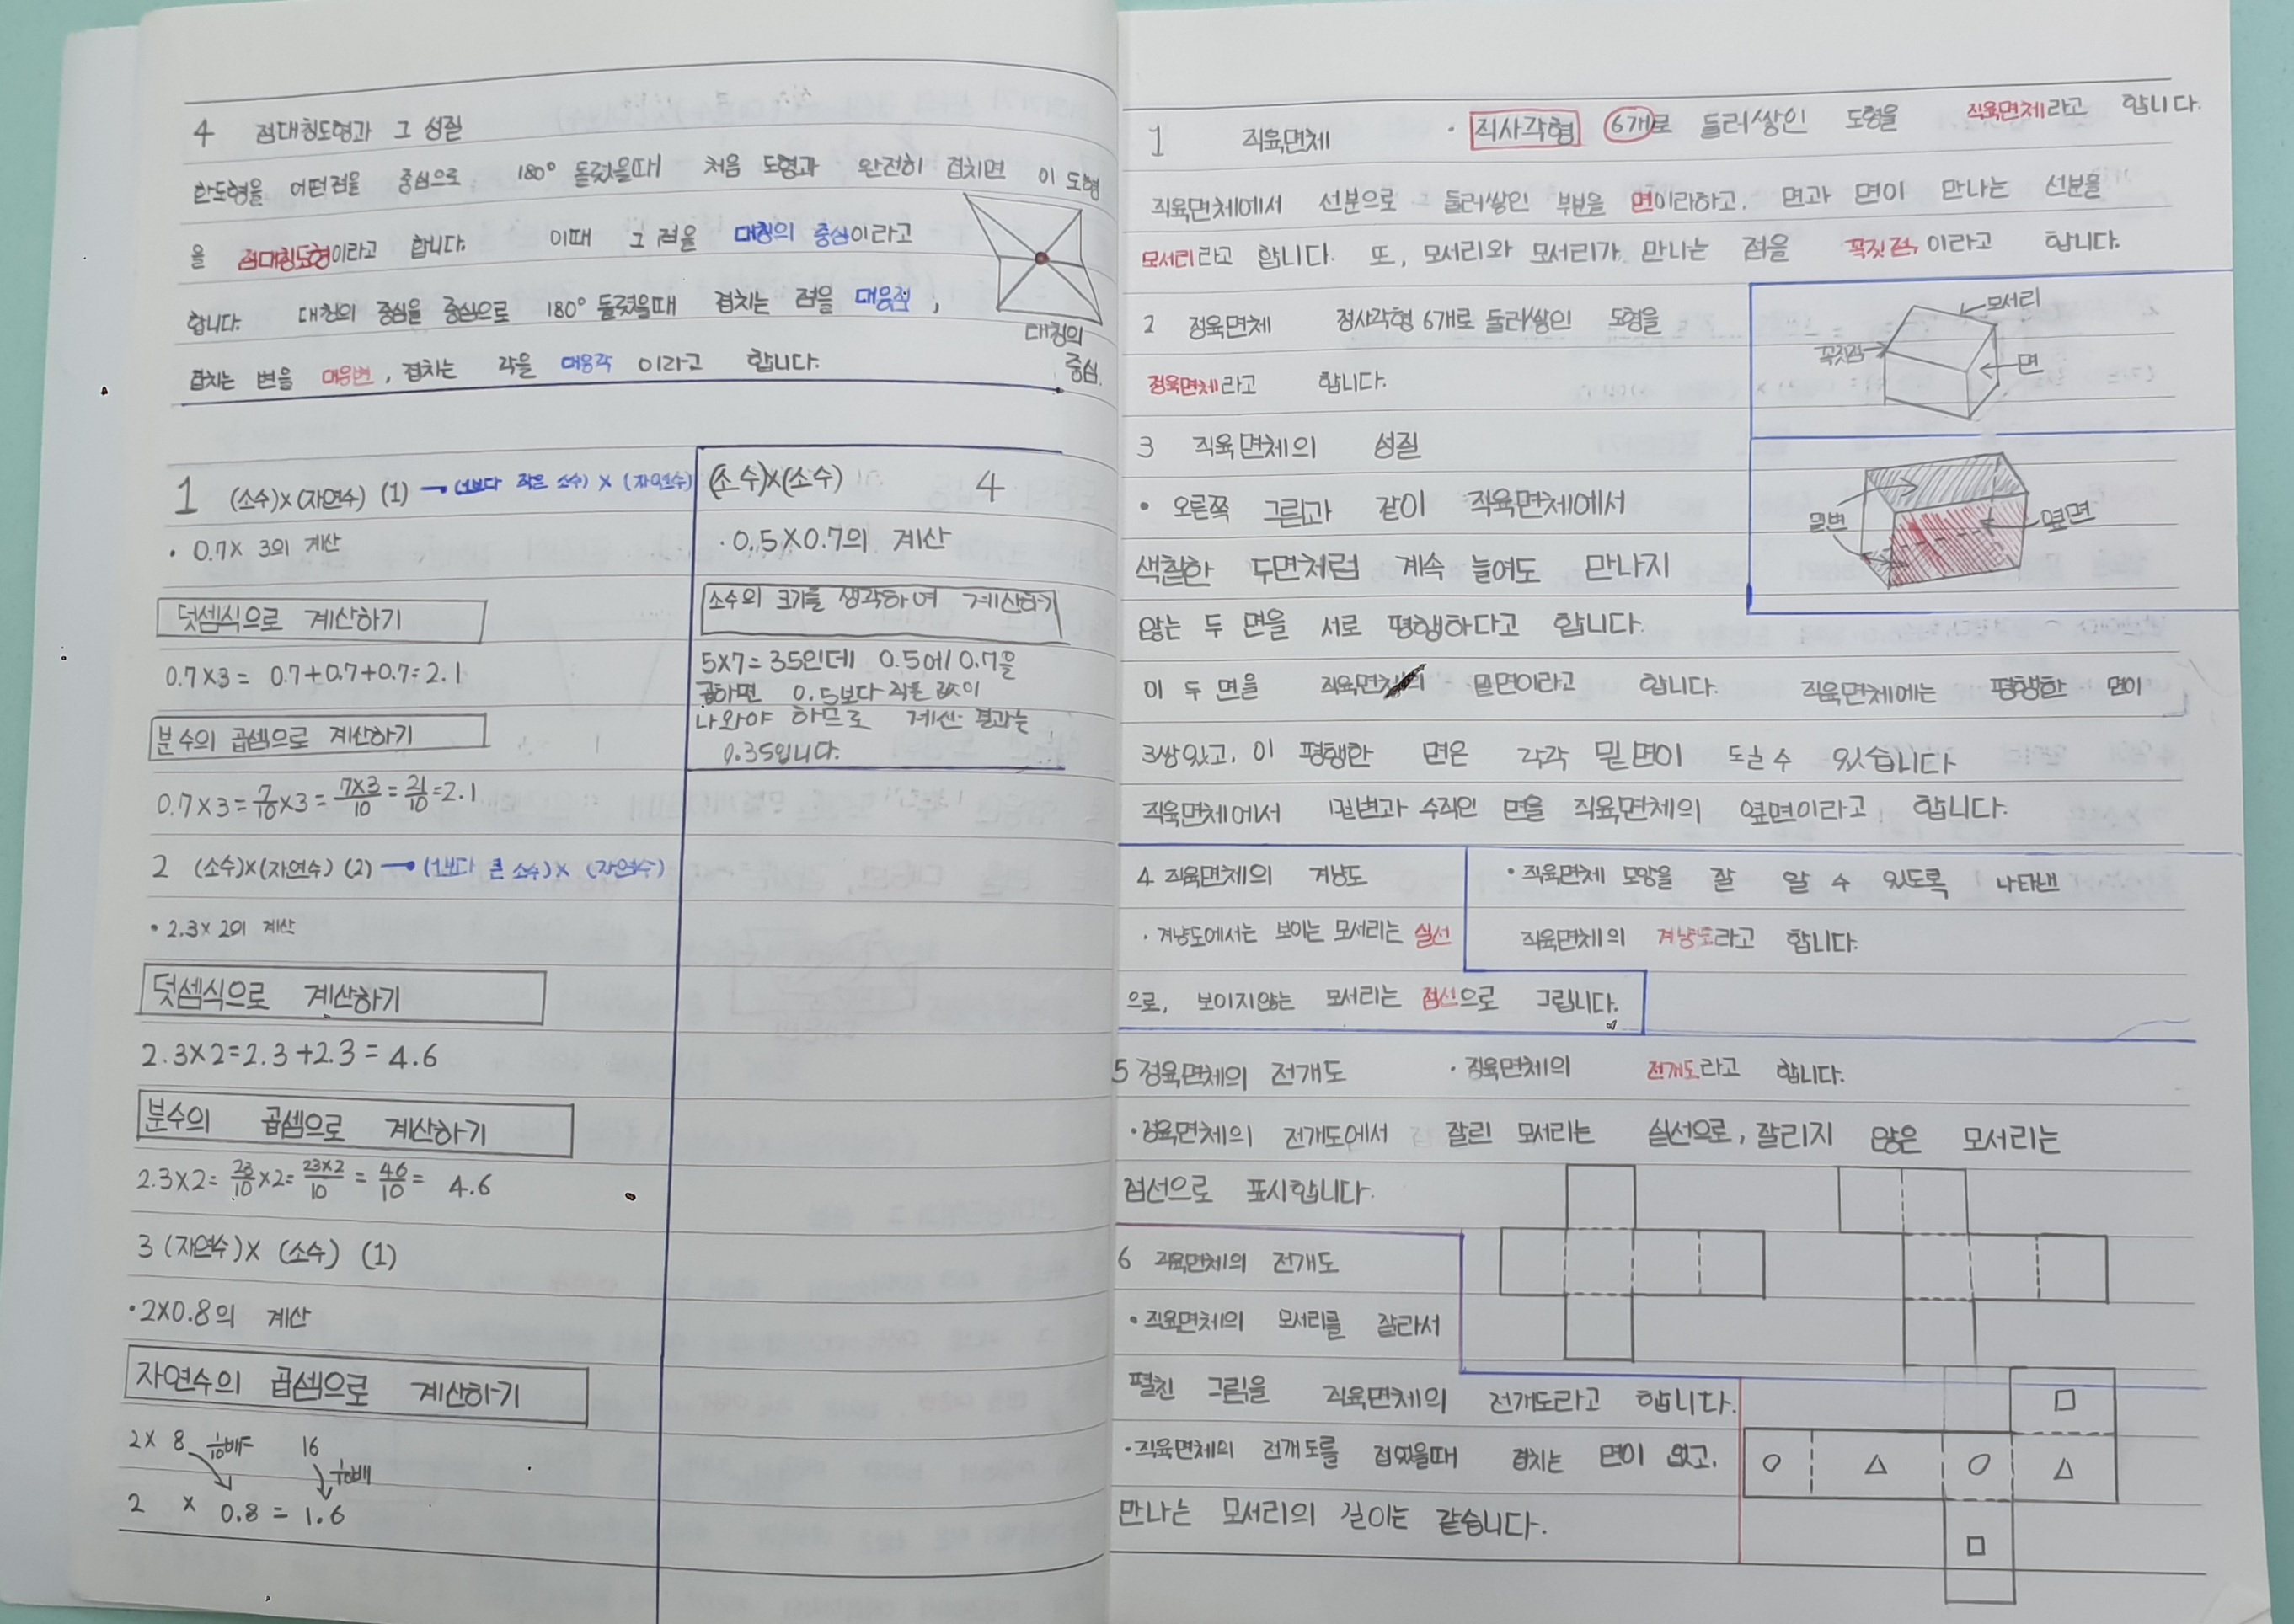 4 점대칭도형과 그 성질
한도형을 어떤점을 중심으로 180° 돌렸을때 처음 도형과 완전히 겹치면 이 도형
을 점대칭도형이라고 합니다. 이때 그 점을 대칭의 중심이라고
합니다. 대칭의 중심을 중심으로 180° 돌렸을때 겹치는 점을 대응점,
겹치는 변을 대응변, 겹치는 각을 대응각 이라고 합니다.
대칭의
중심.
1 (소수)×(자연수) (1) → (1보다 작은 소수) × (자연수)
• 0.7× 3의 계산
덧셈식으로 계산하기
0.7×3= 0.7+0.7+0.7=2.1
분수의 곱셈으로 계산하기
0.7×3=7/10×3=7×3/10=21/10=2.1
2 (소수)×(자연수) (2) → (1보다 큰 소수)× (자연수)
• 2.3× 2의 계산
덧셈식으로 계산하기
2.3×2=2.3+2.3=4.6
분수의 곱셈으로 계산하기
2.3×2=23/10×2=23×2/10=46/10=4.6
3 (자연수)× (소수) (1)
•2×0.8의 계산
자연수의 곱셈으로 계산하기
2× 8 1/10배 16 1/10배
2 × 0.8 = 1.6
(소수)×(소수) 4
·0.5×0.7의 계산
소수의 크기를 생각하여 계산하기
5×7=35인데 0.5에 0.7을
곱하면 0.5보다 작은 값이
나와야 하므로 계산 결과는
0.35입니다.
1 직육면체 · 직사각형 6개로 둘러쌓인 도형을 직육면체라고 합니다.
직육면체에서 선분으로 둘러쌓인 부분을 면이라하고, 면과 면이 만나는 선분을
모서리라고 합니다. 또, 모서리와 모서리가 만나는 점을 꼭짓점,이라고 합니다.
2 정육면체 정사각형 6개로 둘러쌓인 도형을
정육면체라고 합니다.
모서리
꼭짓점
면
3 직육면체의 성질
• 오른쪽 그림과 같이 직육면체에서
색칠한 두면처럼 계속 늘여도 만나지
않는 두 면을 서로 평행하다고 합니다.
밑변
옆면
이 두 면을 직육면체의 밑면이라고 합니다. 직육면체에는 평행한 면이
3쌍있고, 이 평행한 면은 각각 밑면이 될 수 있습니다
직육면체에서 밑변과 수직인 면을 직육면체의 옆면이라고 합니다.
4 직육면체의 겨냥도
• 직육면체 모양을 잘 알 수 있도록 나타낸
직육면체의 겨냥도라고 합니다.
· 겨냥도에서는 보이는 모서리는 실선
으로, 보이지않는 모서리는 점선으로 그립니다.
5 정육면체의 전개도 · 정육면체의 전개도라고 합니다.
•정육면체의 전개도에서 잘린 모서리는 실선으로, 잘리지 않은 모서리는
점선으로 표시합니다.
6 직육면체의 전개도
•직육면체의 모서리를 잘라서
펼친 그림을 직육면체의 전개도라고 합니다.
•직육면체의 전개도를 접었을때 겹치는 면이 없고,
만나는 모서리의 길이는 같습니다.